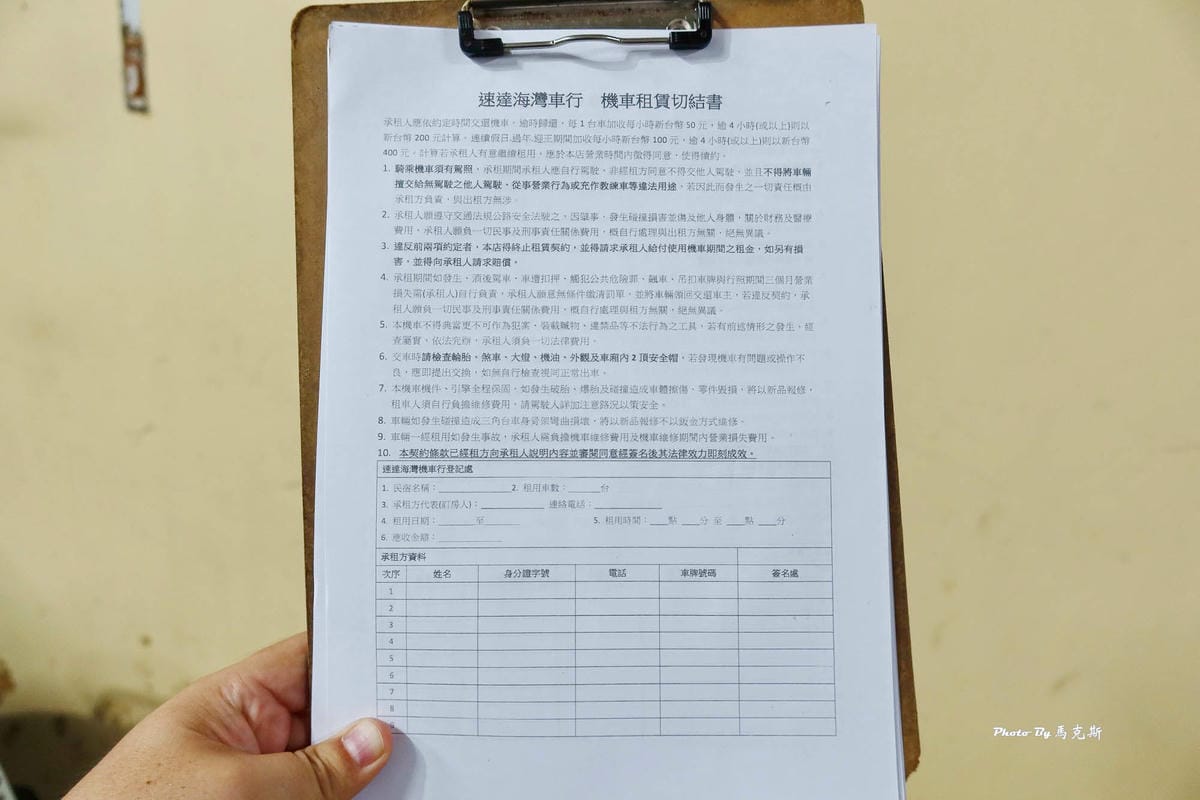 速達海灣車行　機車租賃切結書
承租人應依約定時間交還機車，逾時歸還，每 1 台車加收每小時新台幣 50 元，逾 4 小時(或以上)則以
新台幣 200 元計算。連續假日.過年.迎王期間加收每小時新台幣 100 元，逾 4 小時(或以上)則以新台幣
400 元。計算若承租人有意繼續租用，應於本店營業時間內徵得同意，使得續約。
1. 騎乘機車須有駕照，承租期間承租人應自行駕駛，非經租方同意不得交他人駕駛，並且不得將車輛
擅交給無駕駛之他人駕駛、從事營業行為或充作教練車等違法用途，若因此而發生之一切責任概由
承租方負責，與出租方無涉。
2. 承租人願遵守交通法規公路安全法駛之，因肇事，發生碰撞損害並傷及他人身體，關於財務及醫療
費用，承租人願負一切民事及刑事責任關係費用，概自行處理與出租方無關，絕無異議。
3. 違反前兩項約定者，本店得終止租賃契約，並得請求承租人給付使用機車期間之租金，如另有損
害，並得向承租人請求賠償。
4. 承租期間如發生、酒後駕車，車遭扣押、觸犯公共危險罪、飆車、吊扣車牌與行照期間三個月營業
損失需(承租人)自行負責，承租人願意無條件繳清罰單，並將車輛領回交還車主，若違反契約，承
租人願負一切民事及刑事責任關係費用，概自行處理與租方無關，絕無異議。
5. 本機車不得典當更不可作為犯案、裝載贓物、違禁品等不法行為之工具，若有前述情形之發生，經
查屬實，依法究辦，承租人須負一切法律費用。
6. 交車時請檢查輪胎、煞車、大燈、機油、外觀及車廂內 2 頂安全帽，若發現機車有問題或操作不
良，應即提出交換，如無自行檢查視同正常出車。
7. 本機車機件、引擎全程保固，如發生破胎、爆胎及碰撞造成車體擦傷、零件毀損，將以新品報修，
租車人須自行負擔維修費用，請駕駛人詳加注意路況以策安全。
8. 車輛如發生碰撞造成三角台車身骨架彎曲損壞，將以新品報修不以鈑金方式維修。
9. 車輛一經租用如發生事故，承租人需負擔機車維修費用及機車維修期間內營業損失費用。
10. 本契約條款已經租方向承租人說明內容並審閱同意經簽名後其法律效力即刻成效。
速達海灣機車行登記處
1. 民宿名稱：____________2. 租用車數：______台
3. 承租方代表(訂房人)：____________ 連絡電話：____________
4. 租用日期：_______至_______ 5. 租用時間：___點 ___分 至 ___點 ___分
6. 應收金額：____________
承租方資料
次序 姓名 身分證字號 電話 車牌號碼 簽名處
1
2
3
4
5
6
7
8
Photo By 馬克斯